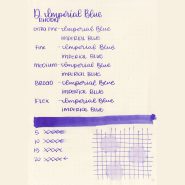 D. Imperial Blue
Extra Fine - Imperial Blue
Imperial Blue
Fine - Imperial Blue
Imperial Blue
Medium - Imperial Blue
Imperial Blue
Broad - Imperial Blue
Imperial Blue
Flex - Imperial Blue
Imperial Blue
5 xxxxx
10 xxxxx
15 xxxxx
20 xxxxx